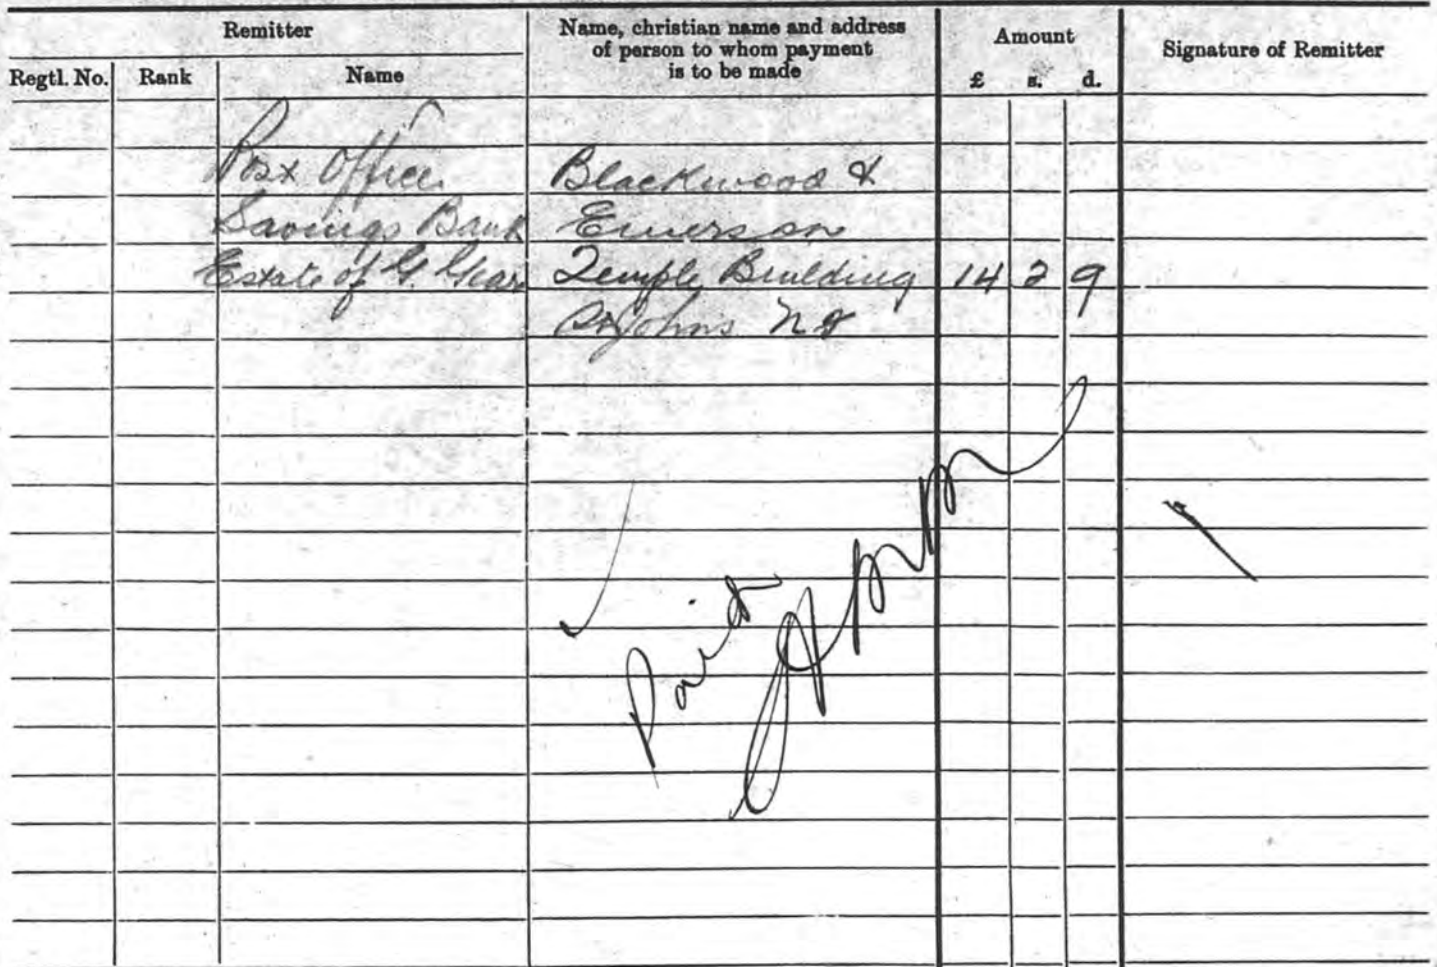 Remitter
Name, christian name and address
of person to whom payment
is to be made
Amount
Signature of Remitter
Regtl. No. Rank Name
£ s. d.
Post Office Blackwood &
Savings Bank Emerson
Estate of G. Gear Temple Building 14 2 9
St Johns Nf
Paid